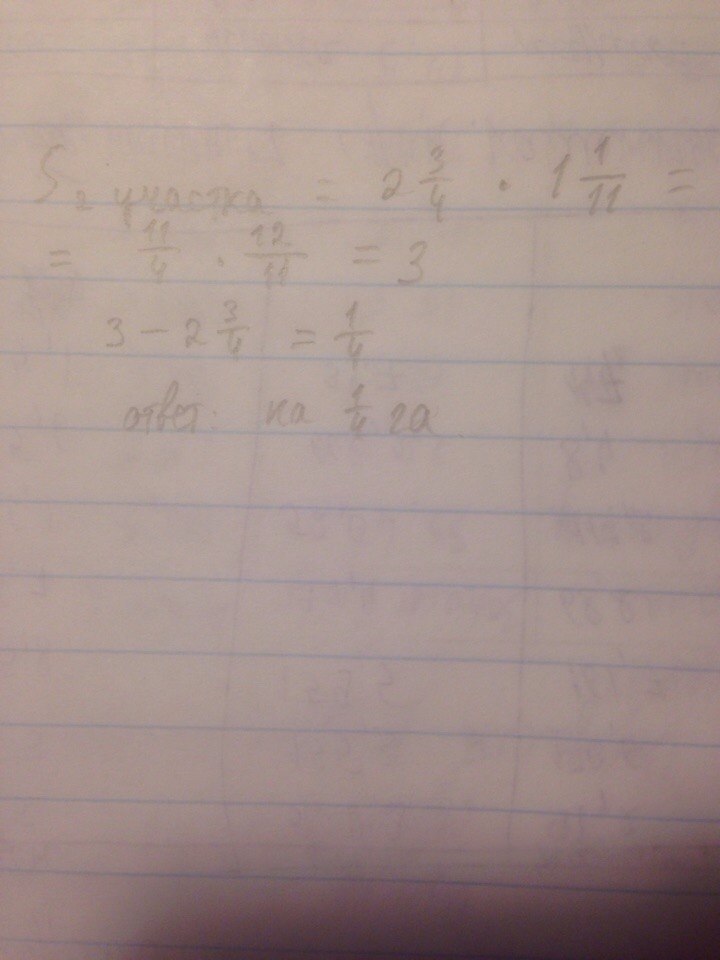 S₂ участка = 2 3/4 · 1 1/11 =
= 11/4 · 12/11 = 3
3 - 2 3/4 = 1/4
ответ: на 1/4 га